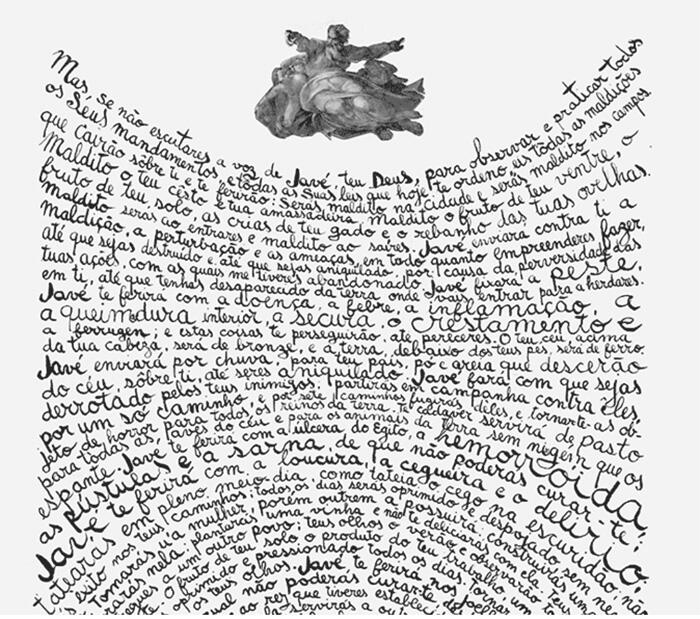 Mas, se não escutares a voz de Javé, teu Deus, para observar e praticar todos
os Seus mandamentos, e todas as Suas leis que hoje te ordeno, eis todas as maldições
que cairão sôbre ti e te ferirão: Serás maldito na cidade e serás maldito nos campos.
Maldito o teu cesto e tua amassadeira. Maldito o fruto de teu ventre, o
fruto de teu solo, as crias de teu gado e o rebanho das tuas ovelhas.
Maldito serás ao entrares e maldito ao saíres. Javé enviará contra ti a
maldição, a perturbação e as ameaças, em todo quanto empreenderes fazer,
até que sejas destruído e até que sejas aniquilado, por causa da perversidade das
tuas ações, com as quais me tiveres abandonado. Javé fixará a peste,
em ti, até que tenhas desaparecido da terra, onde vais entrar para a herdares.
Javé te ferirá com a doença, a febre, a inflamação, a
a queimadura interior, a secura, o crestamento e
a ferrugen; e estas coisas te perseguirão, até pereceres. O teu céu, acima
da tua cabeza, será de bronze, e a terra, debaixo dos teus pés, será de ferro.
Javé enviará por chuva para teu país, pó e areia que descerão
do céu, sôbre ti, até seres aniquilado. Javé fará com que sejas
derrotado pelos teus inimigos: partirás em campanha contra eles,
por um só caminho, e por sete caminhos fugirás deles, e tornar-te-ás ob-
jeto de horror para todos os reinos da terra. Teu cadáver servirá de pasto
para todas as aves do céu e para os animais da terra sem ninguém que os
espante. Javé te ferirá com a úlcera do Egito, a hemorroida,
as pústulas e a sarna, de que não poderás curar-te;
Javé te ferirá com a loucura, a cegueira e o delírio;
tatearás em pleno meio dia, como tateia o cego na escuridão; não
exito nos teus caminhos; todos os dias serás oprimido e despojado, sem ne
Tomarás u'a mulher, porém outrem a possuirá; construirás uma
nela; plantarás uma vinha e não te deliciarás com ela. Teus
a um outro povo; teus olhos o verão e observarão
O fruto de teu solo, o produto do teu trabalho, um
oprimido e pressionado todos os dias. Tornar
os teus olhos. Javé te ferirá nos joel
qual não poderás curar-te, de
ao rei que tiveres estabelec
servirás a out